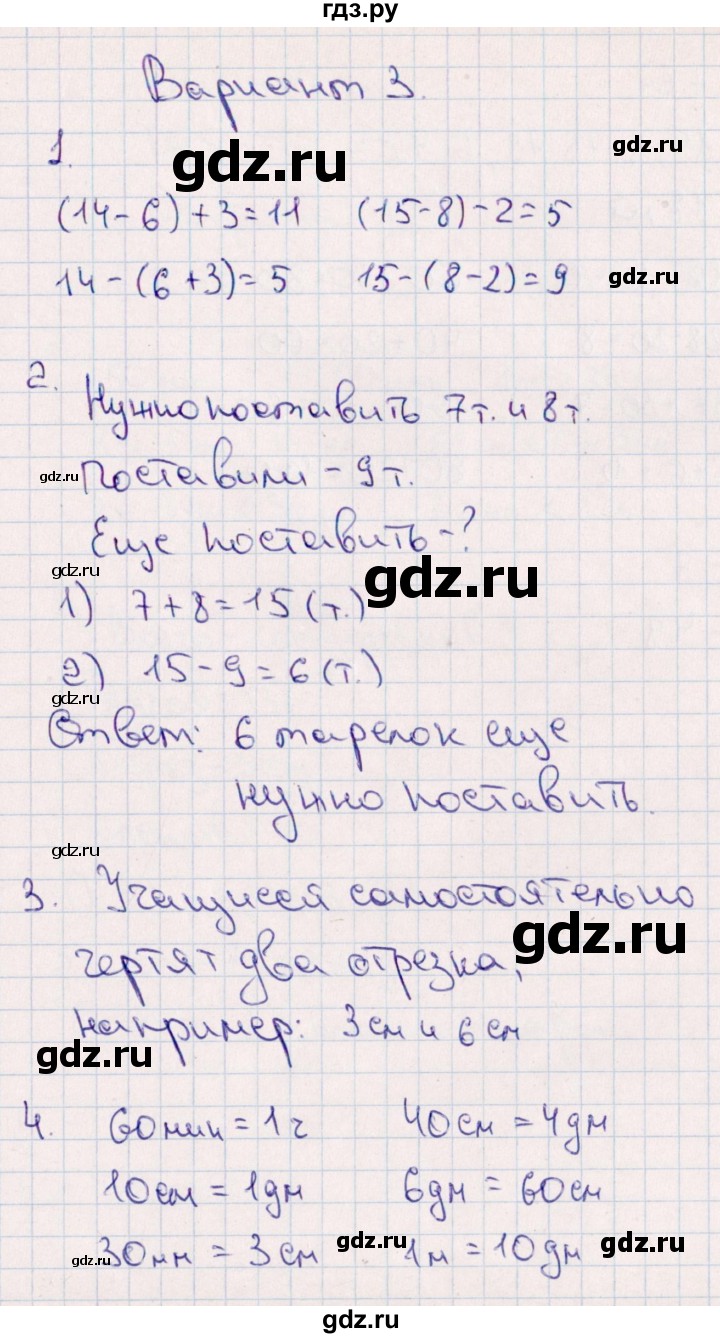 гдз.ру
Вариант 3.
1.
gdz.ru
gdz.ru
(14-6)+3=11 (15-8)-2=5
14-(6+3)=5 15-(8-2)=9
gdz.ru
2. Нужно поставить 7т. и 8т.
gdz.ru
Поставили - 9т.
Еще поставить-?
gdz.ru
gdz.ru
1) 7+8=15(т.)
2) 15-9=6(т.)
gdz.ru
Ответ: 6 тарелок еще
нужно поставить.
gdz.ru
3. Учащиеся самостоятельно
gdz.ru
чертят два отрезка,
например: 3см и 6см
gdz.ru
4. 60мин=1ч 40см=4дм
10см=1дм 6дм=60см
30мм=3см 1м=10дм
gdz.ru
gdz.ru
gdz.ru
gdz.ru